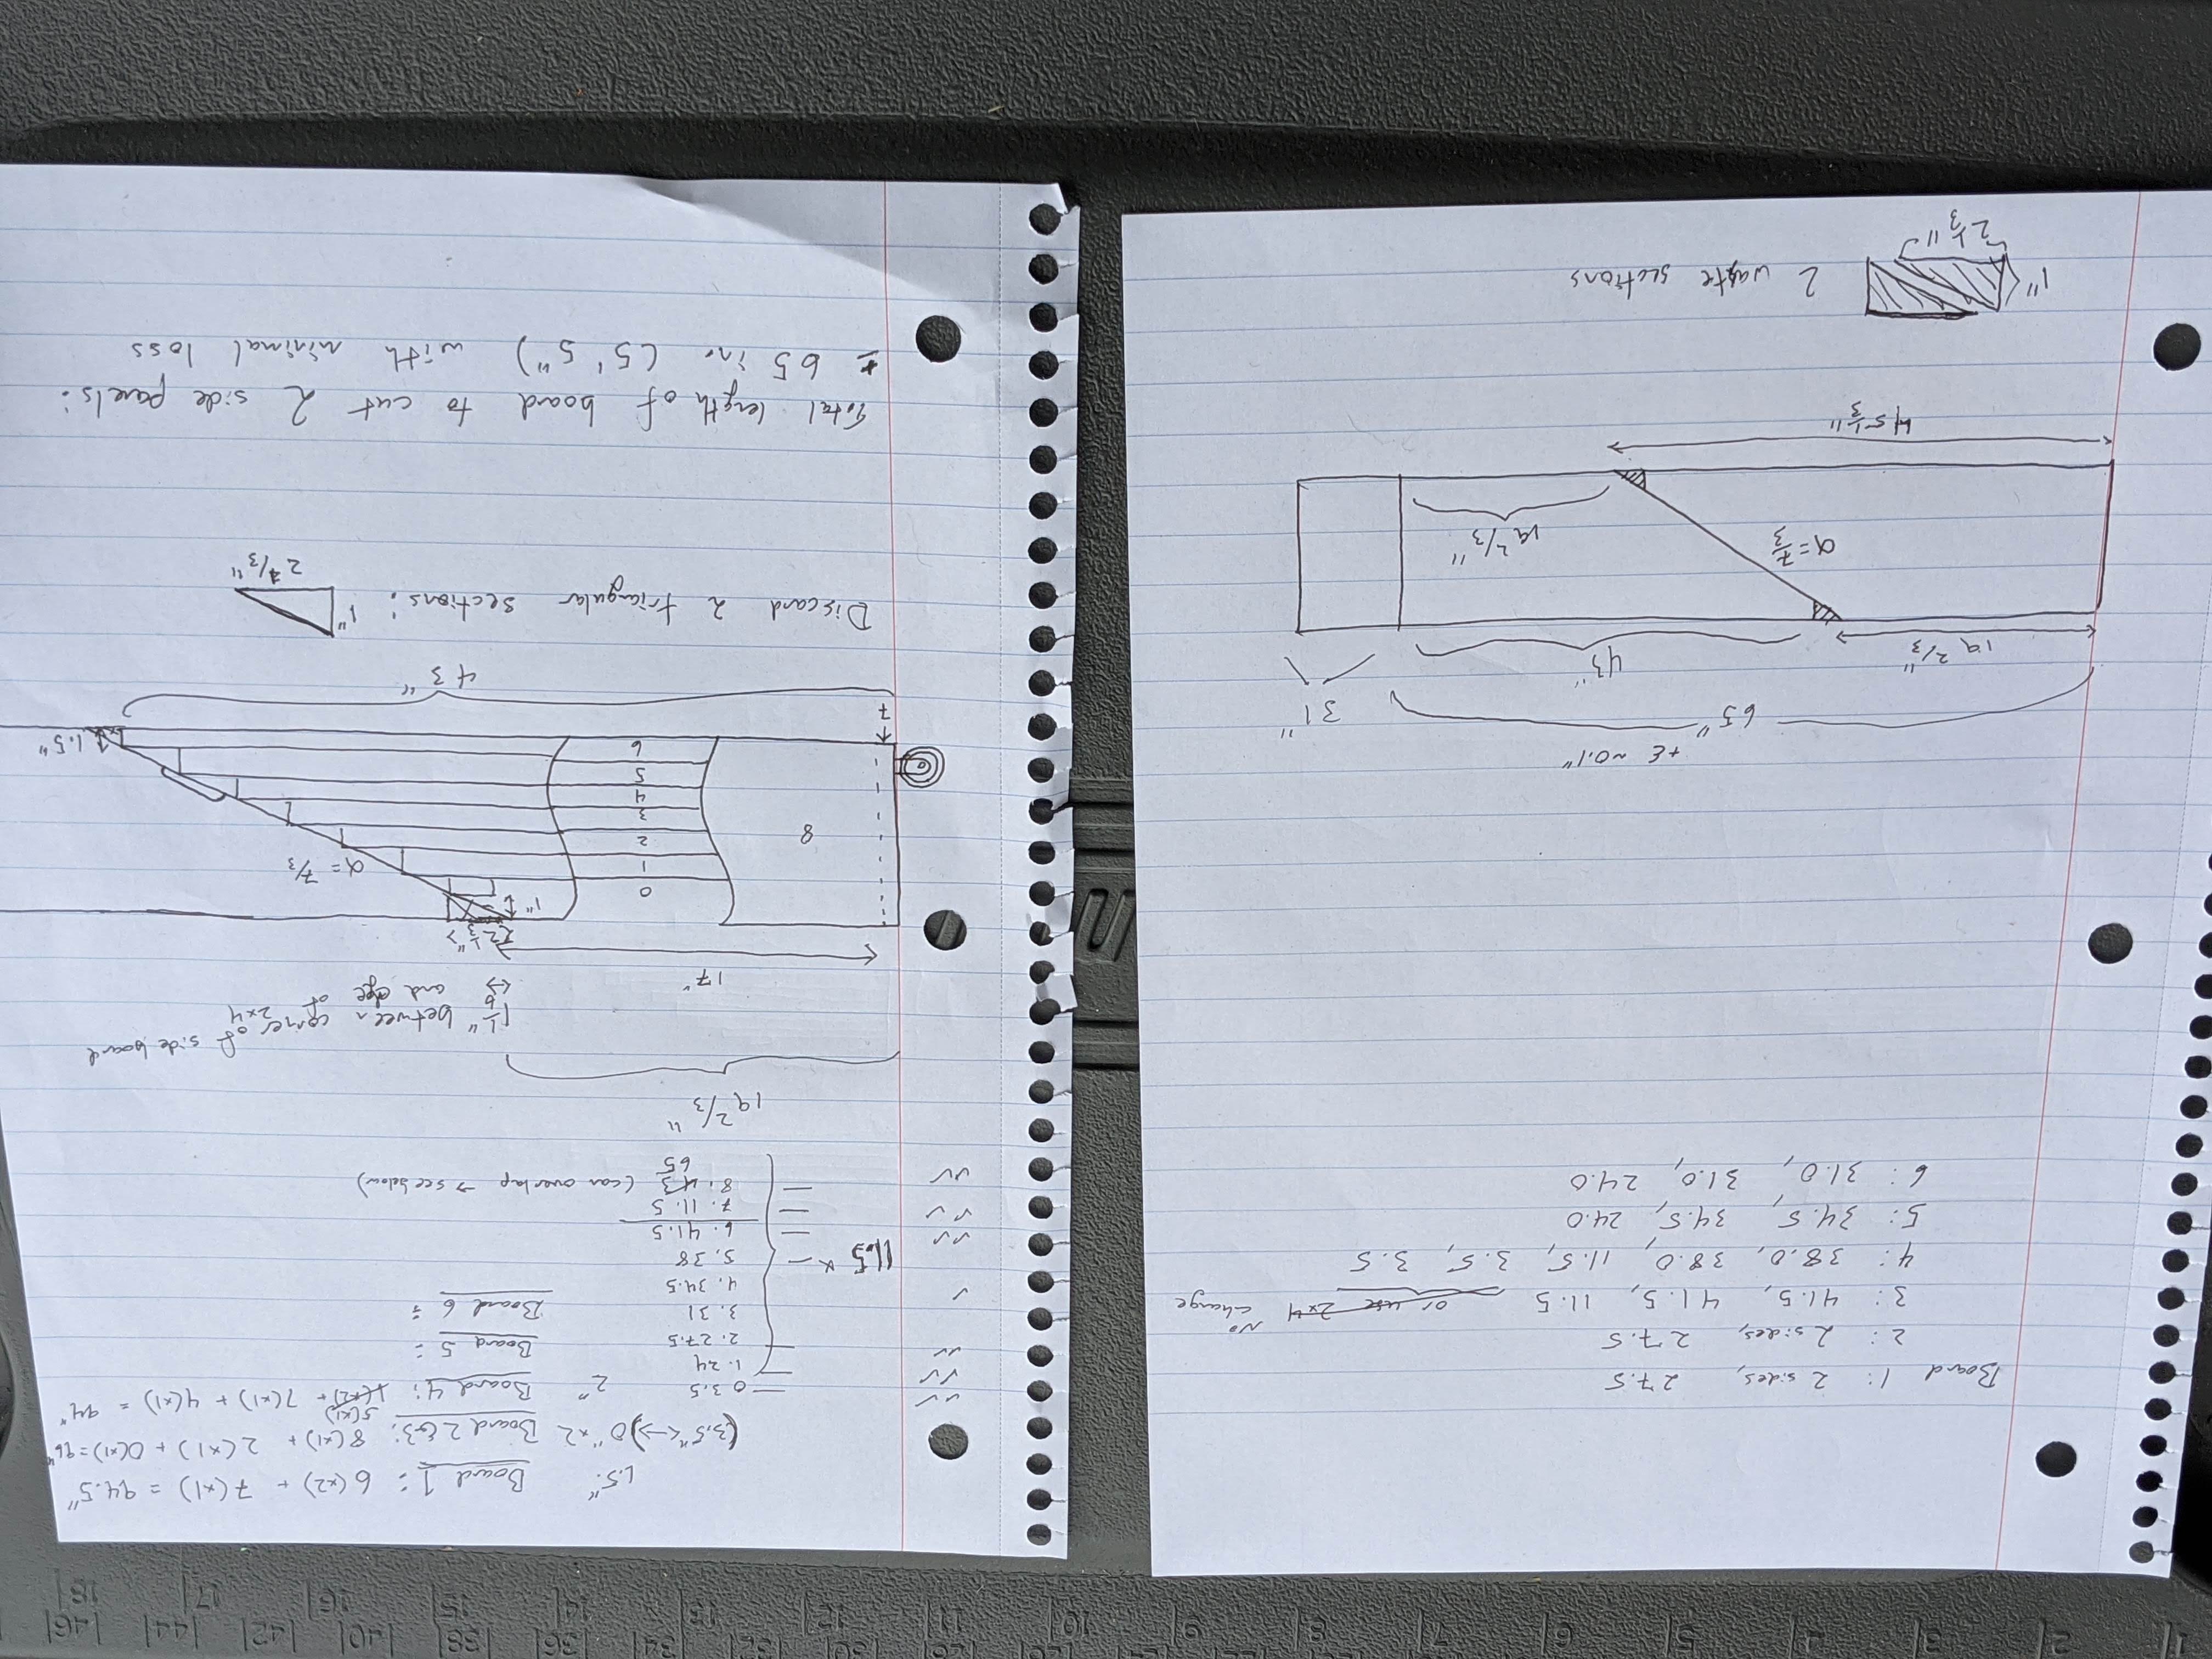 1 2 3 4 5 6 7 8 9 10 11 12 13 14 15 16 17 18
28 30 32 34 36 38 40 42 44 46
Board 1: 2 sides, 27.5
2: 2 sides, 27.5
3: 41.5, 41.5, 11.5 or use 2x4 No change
4: 38.0, 38.0, 11.5, 3.5, 3.5
5: 34.5, 34.5, 24.0
6: 31.0, 31.0, 24.0
+ε ~0.1"
65" 31"
19 2/3" 43"
α = 7/3
19 2/3"
45 1/3"
1" 2 waste sections
2 1/3"
1.5" Board 1: 6(x2) + 7(x1) = 94.5"
(3.5"<->)0"x2 Board 2&3: 8(x1) + 2(x1) + 0(x1)=96"
5(x1)
2" Board 4: 1(x2) + 7(x1) + 4(x1) = 94"
Board 5:
Board 6:
0 3.5
1. 24
2. 27.5
3. 31
4. 34.5
11.5 x
5. 38
6. 41.5
7. 11.5
8. 43 (can overlap → see below)
65
19 2/3"
1 1/6" between corner of side board
and edge of 2x4
17"
2 1/3"
1"
0
1
2
3
4
5
6
8
α = 7/3
1.5"
7
43"
Discard 2 triangular sections: 1"
2 1/3"
Total length of board to cut 2 side panels:
65 in. (5' 5") with minimal loss